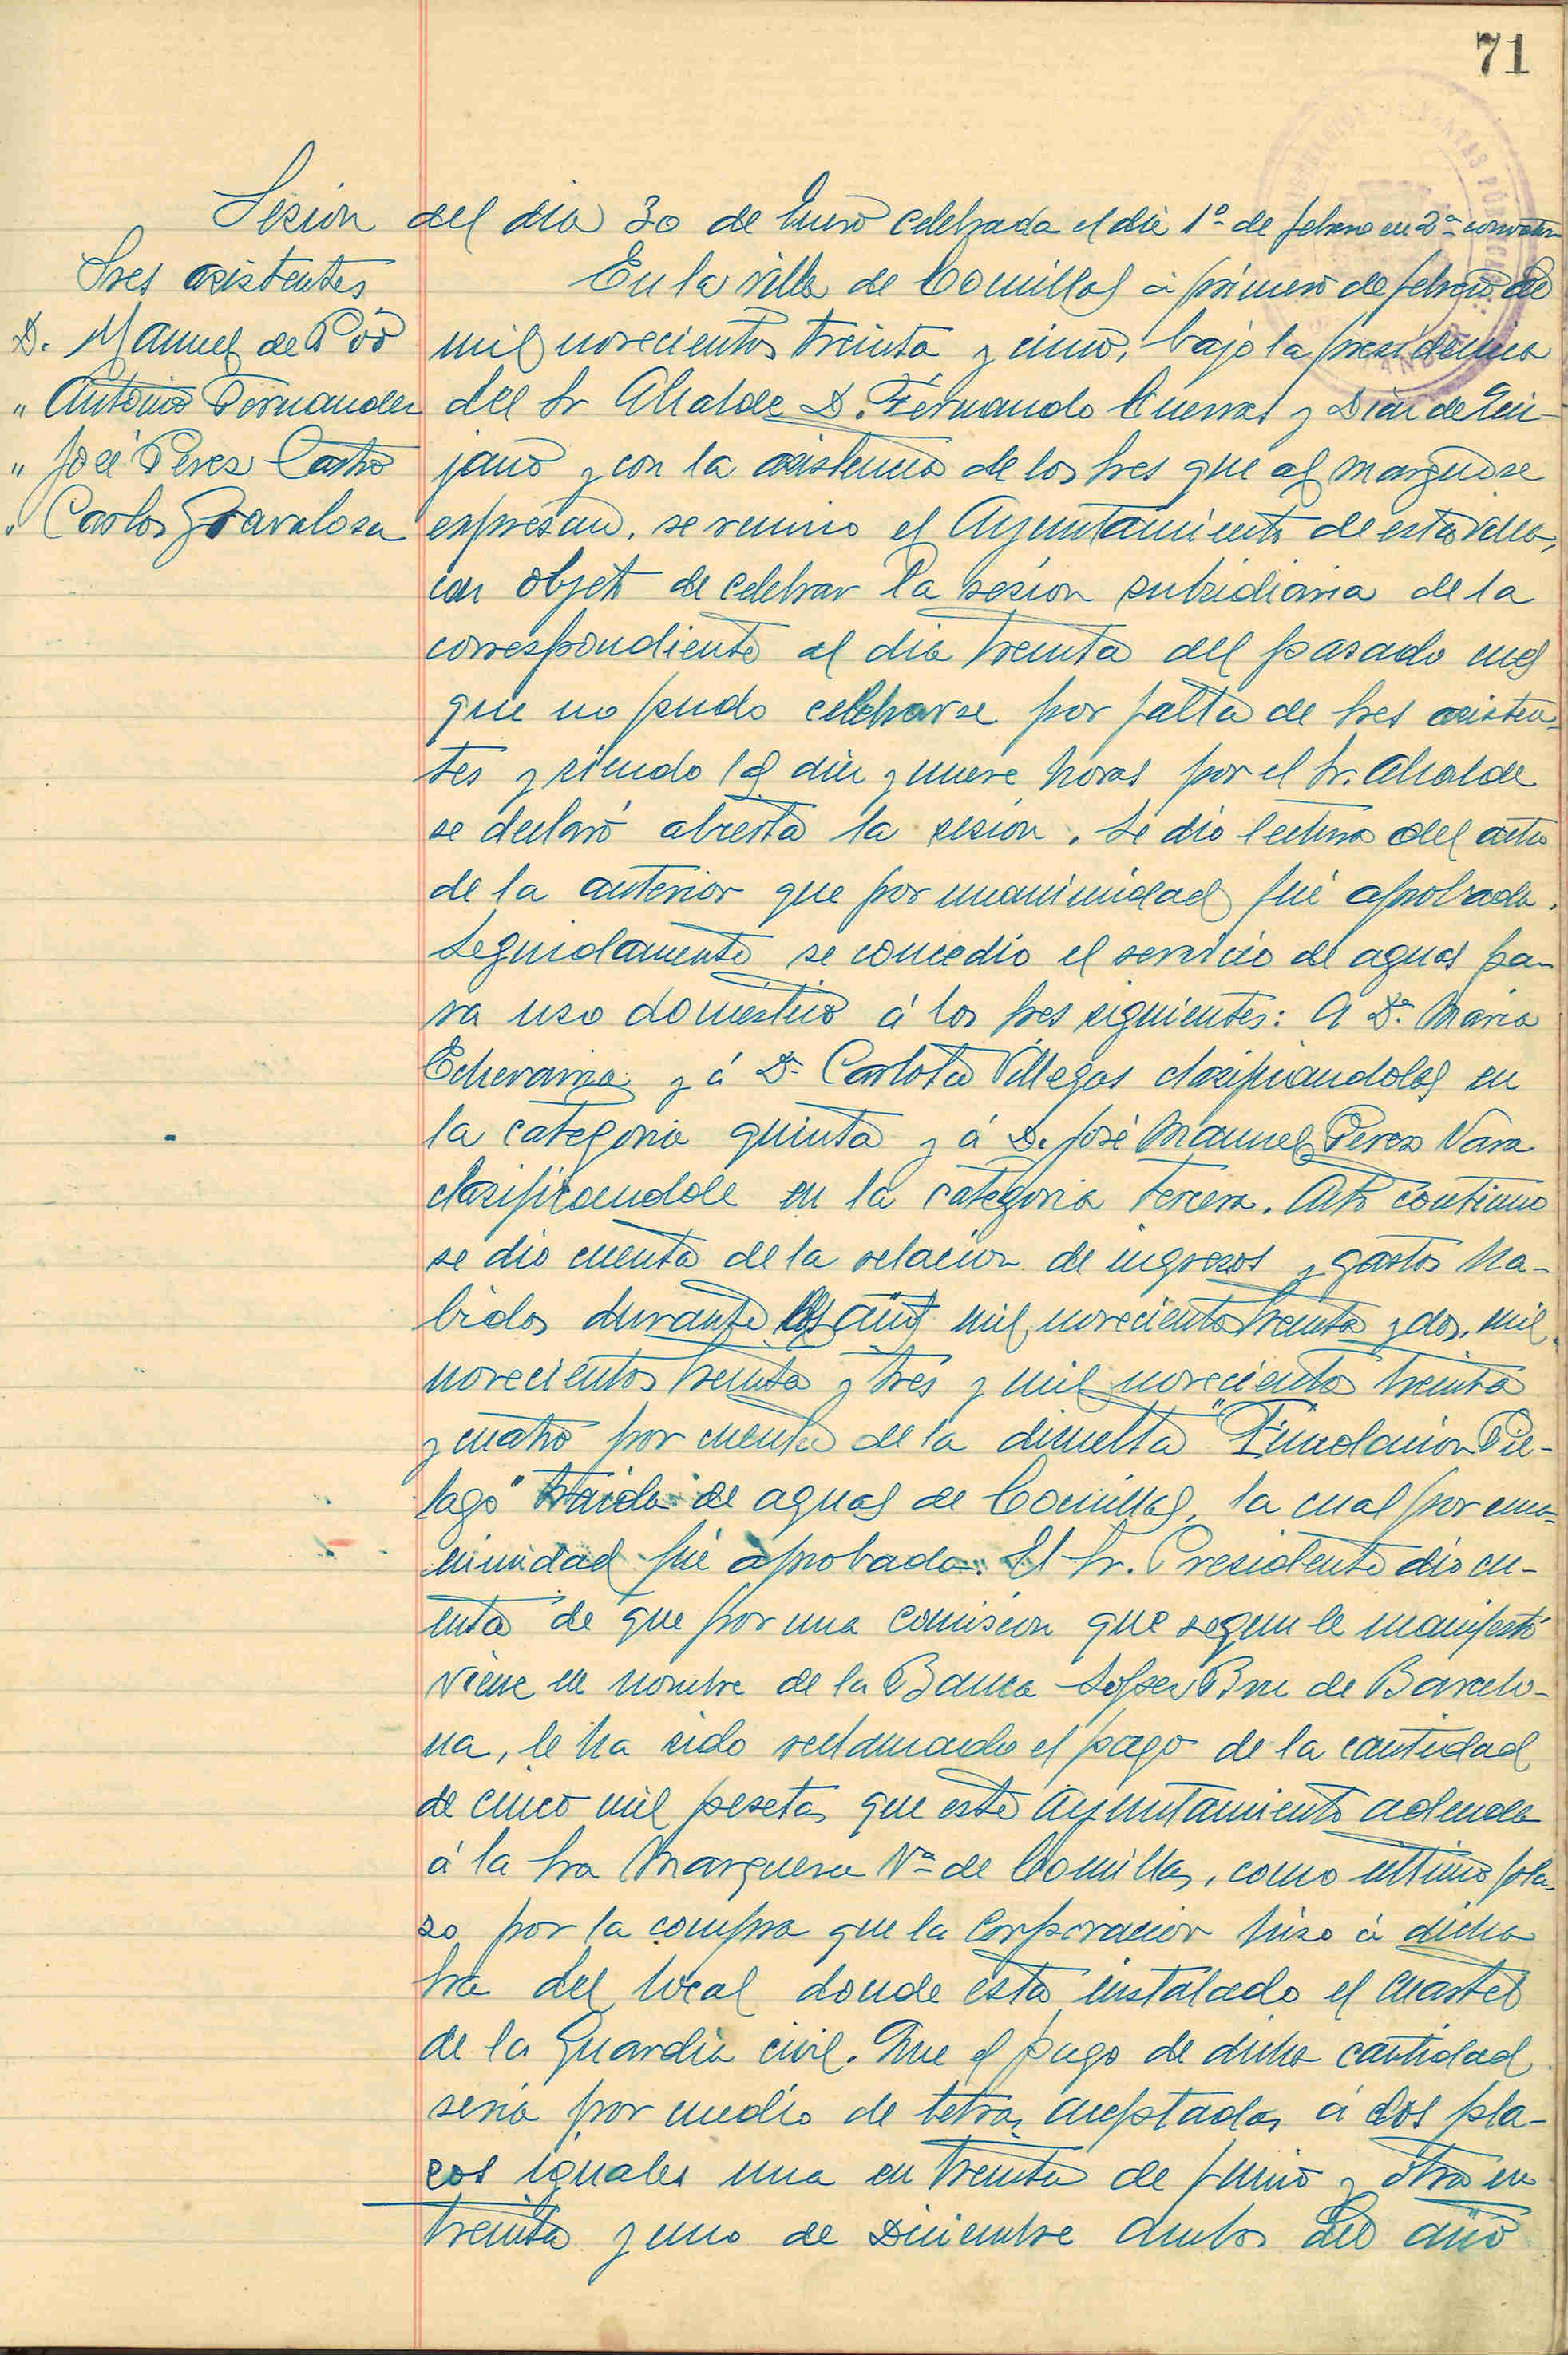 71
Sesion del dia 30 de Enero celebrada el dia 1º de febrero en 2ª convocatⁿ
Sres asistentes
D. Manuel de Póo
" Antonio Fernandez
" José Perez Castro
" Carlos Gravalosa
En la villa de Comillas á primero de febrero de
mil novecientos treinta y cinco, bajo la presidencia
del Sr Alcalde D. Fernando Cuevas y Diaz de Quijano
jano y con la asistencia de los Sres que al margen se
expresan, se reunio el Ayuntamiento de esta villa,
con objeto de celebrar la sesion subsidiaria de la
correspondiente al dia treinta del pasado mes
que no pudo celebrarse por falta de Sres asisten-
tes y siendo las diez y nueve horas por el Sr. Alcalde
se declaró abierta la sesion. Se dio lectura del acta
de la anterior que por unanimidad fué aprobada.
Seguidamente se concedio el servicio de aguas pa-
ra uso domestico á los Sres siguientes: A Dª Maria
Echevarria y á Dª Carlota Villegas clasificandolas en
la categoria quinta y á D. José Manuel Perez Vara
clasificandole en la categoria tercera. Acto continuo
se dio cuenta de la relacion de ingresos y gastos ha-
bidos durante los años mil novecientos treinta y dos, mil
novecientos treinta y tres y mil novecientos treinta
y cuatro por cuenta de la disuelta "Fundacion Pie-
lago" traida de aguas de Comillas, la cual por una-
nimidad fué aprobada. El Sr. Presidente dio cu-
enta de que por una comision que segun le manifestó
viene en nombre de la Banca Soler de Barcelo-
na, le ha sido reclamado el pago de la cantidad
de cinco mil pesetas que este Ayuntamiento adeuda
á la Sra Marquesa Vª de Comillas, como ultimo pla-
zo por la compra que la Corporacion hizo á dicha
Sra del local donde esta instalado el cuartel
de la Guardia civil. Que el pago de dicha cantidad
seria por medio de letras aceptadas á dos pla-
zos iguales una en treinta de Junio y otra en
treinta y uno de Diciembre ambos del año